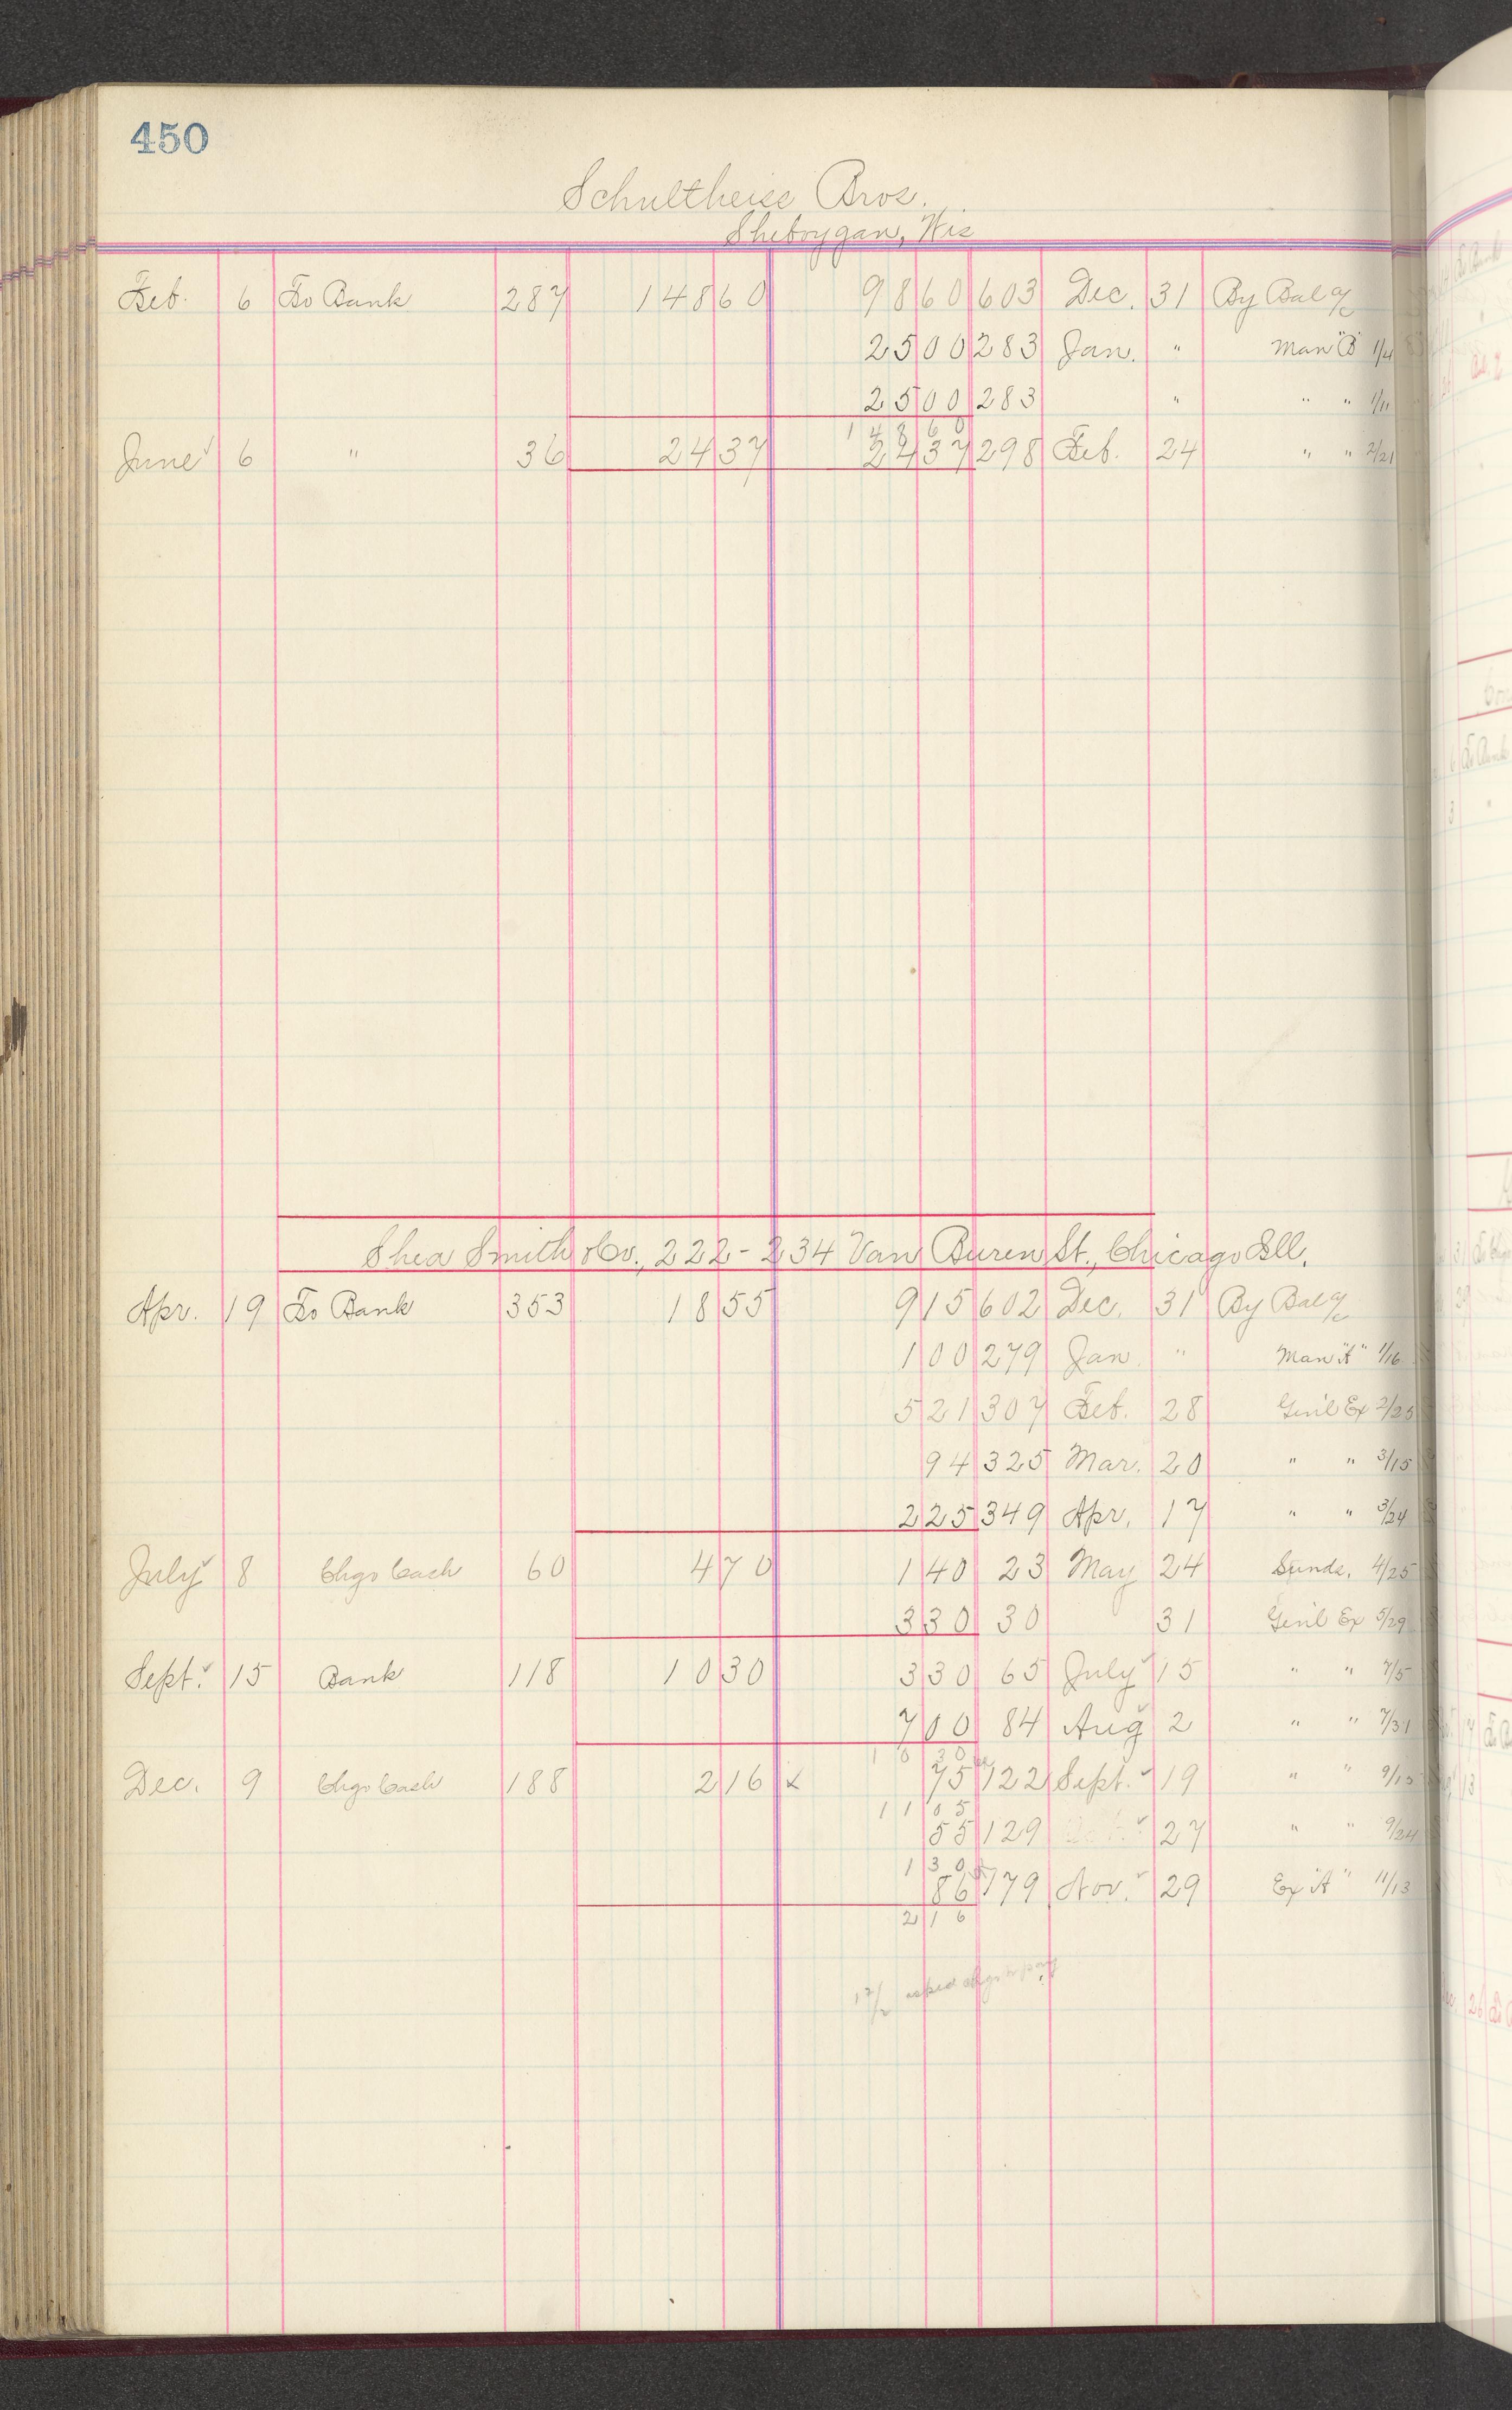 450
Schultheiss Bros.
Sheboygan, Wis
Feb. 6 To Bank 287 148 60 98 60 603 Dec. 31 By Bal a/c
25 00 283 Jan. " Man "B" 1/4
25 00 283 " " " 1/11
1 48 60
June 6 " 36 24 37 24 37 298 Feb. 24 " " 2/21
Shea Smith & Co., 222-234 Van Buren St., Chicago Ill.
Apr. 19 To Bank 353 18 55 9 15 602 Dec. 31 By Bal a/c
1 00 279 Jan " Man "A" 1/16
5 21 307 Feb. 28 Gen'l Ex 2/25
94 325 Mar. 20 " " 3/15
2 25 349 Apr. 17 " " 3/24
July 8 Chgo Cash 60 4 70 1 40 23 May 24 Sunds. 4/25
3 30 30 31 Gen'l Ex 5/29
Sept. 15 Bank 118 10 30 3 30 65 July 15 " " 7/5
7 00 84 Aug 2 " " 7/31
10 30
Dec. 9 Chgo Cash 188 2 16 x 75 122 Sept. 19 " " 9/13
11 05
55 129 27 " " 9/24
1 30
86 179 Nov. 29 Ex "A" 11/13
2 16